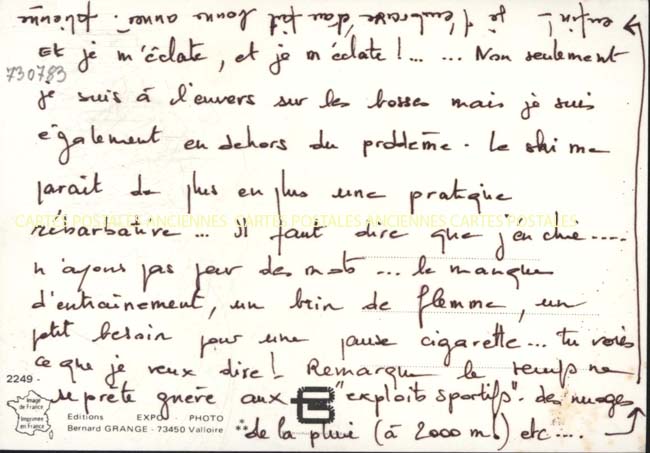 Et je m'éclate, et je m'éclate !... ... Non seulement
je suis à l'envers sur les bosses mais je suis
également en dehors du problème. Le ski me
parait de plus en plus une pratique
rébarbative... il faut dire que j'en chie.....
n'ayons pas peur des mots... le manque
d'entraînement, un brin de flemme, un
ptit besoin pour une pause cigarette... tu vois
ce que je veux dire ! Remarque le temps ne
se prête guère aux "exploits sportifs". des nuages
de la pluie (à 2000 m.) etc....
enfin ! je t'embrasse, d'au fait bonne année.
730783
CARTES POSTALES ANCIENNES CARTES POSTALES ANCIENNES CARTES POSTALES
2249 -
Image
de France
Imprimée
en France
Editions EXPO - PHOTO
Bernard GRANGE - 73450 Valloire